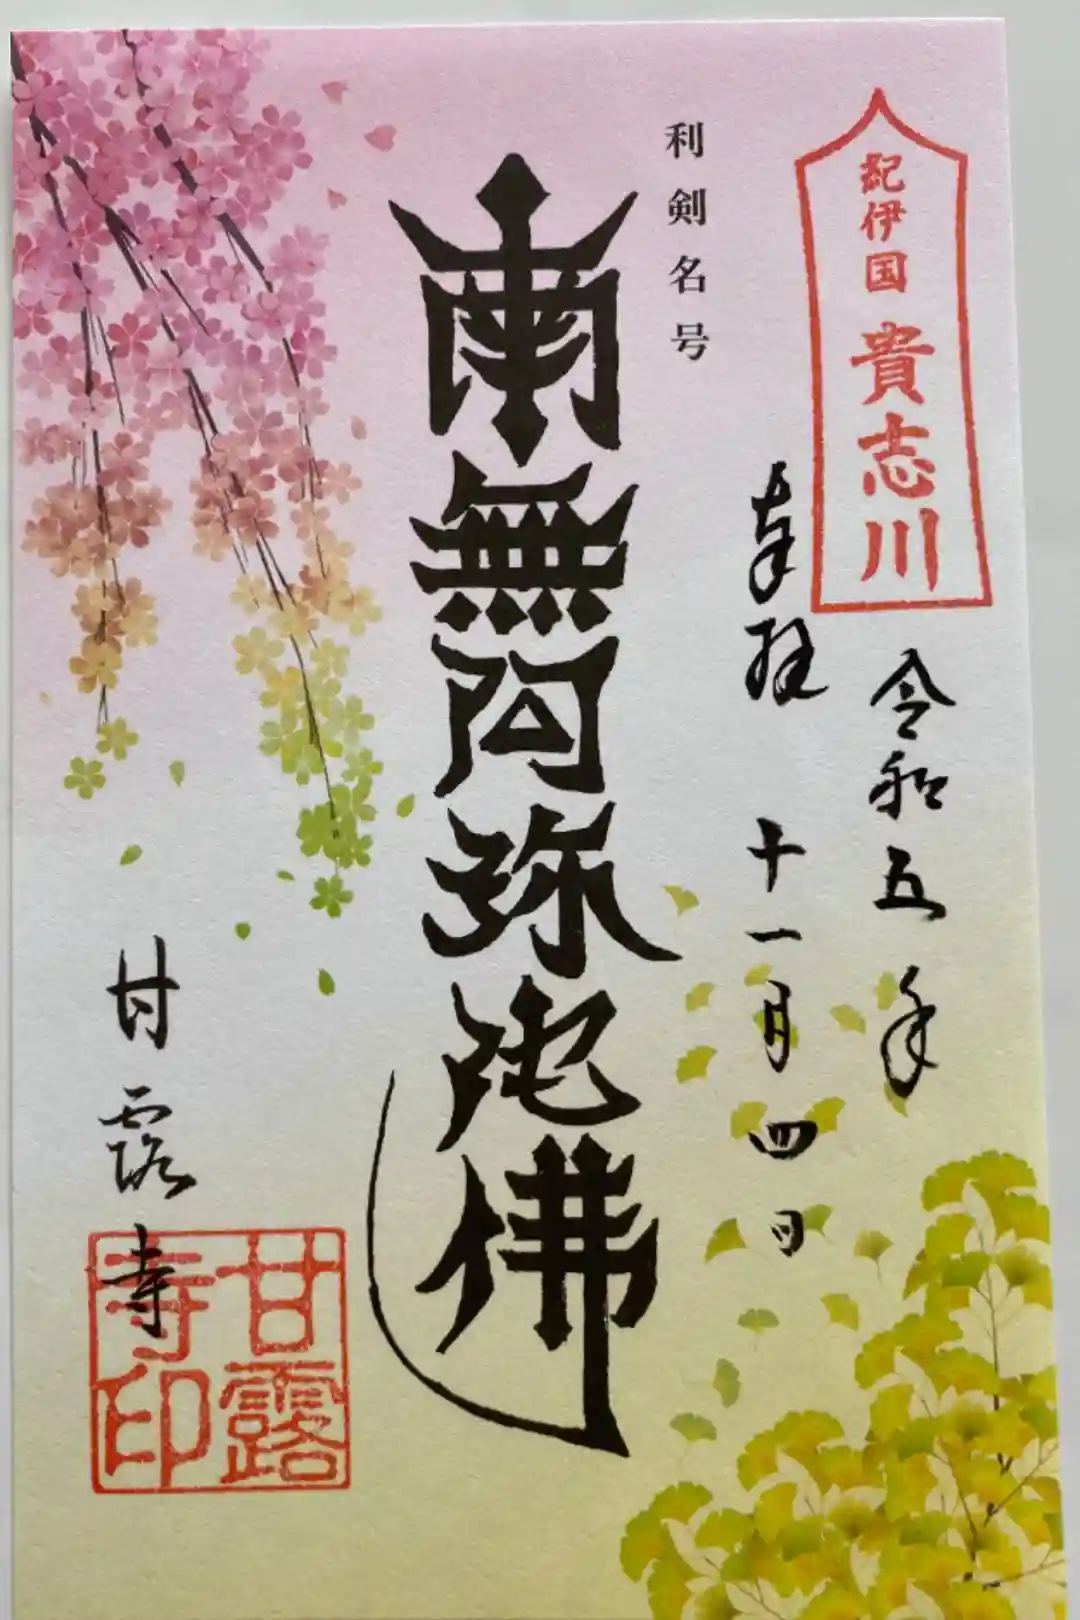 紀伊国 貴志川
令和五年
奉拝 十一月四日
利剣名号
南無阿弥陀佛
甘露寺
甘露寺印